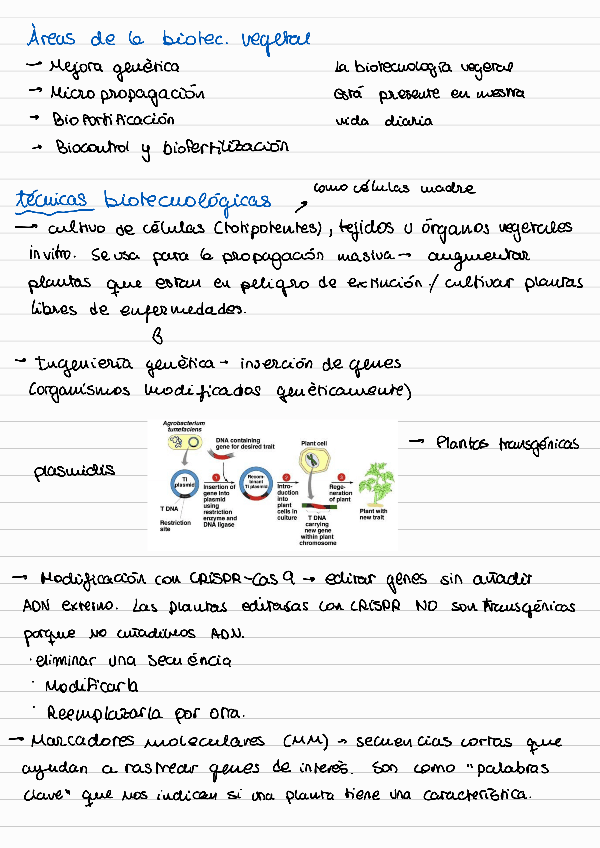 Àreas de la biotec. vegetal
→ Mejora genètica
→ Micropropagación
→ Biofortificación
→ Biocontrol y biofertilización
La biotecnología vegetal
está presente en nuestra
vida diaria
técnicas biotecnológicas
como células madre
→ cultivo de células (totipotentes), tejidos u órganos vegetales
in vitro. Se usa para la propagación masiva → augmentar
plantas que estan en peligro de extinción / cultivar plantas
libres de enfermedades.
→ Ingenieria genètica → inserción de genes
(organismos modificados genèticamente)
Agrobacterium
tumefaciens
DNA containing
gene for desired trait
Plant cell
Ti
plasmid
1
Recom-
binant
Ti plasmid
2
3
Insertion of
gene into
plasmid
using
restriction
enzyme and
DNA ligase
Intro-
duction
into
plant
cells in
culture
Rege-
neration
of plant
T DNA
Restriction
site
T DNA
carrying
new gene
within plant
chromosome
Plant with
new trait
→ Plantas transgénicas
plasmidis
→ Modificación con CRISPR-Cas 9 → editar genes sin añadir
ADN externo. Las plantas editadas con CRISPR NO son transgénicas
porque no añadimos ADN.
· eliminar una secuéncia
· Modificarla
· Reemplazarla por otra.
→ Marcadores moleculares (MM) → secuencias cortas que
ayudan a rastrear genes de interés. Son como "palabras
clave" que nos indican si una planta tiene una característica.